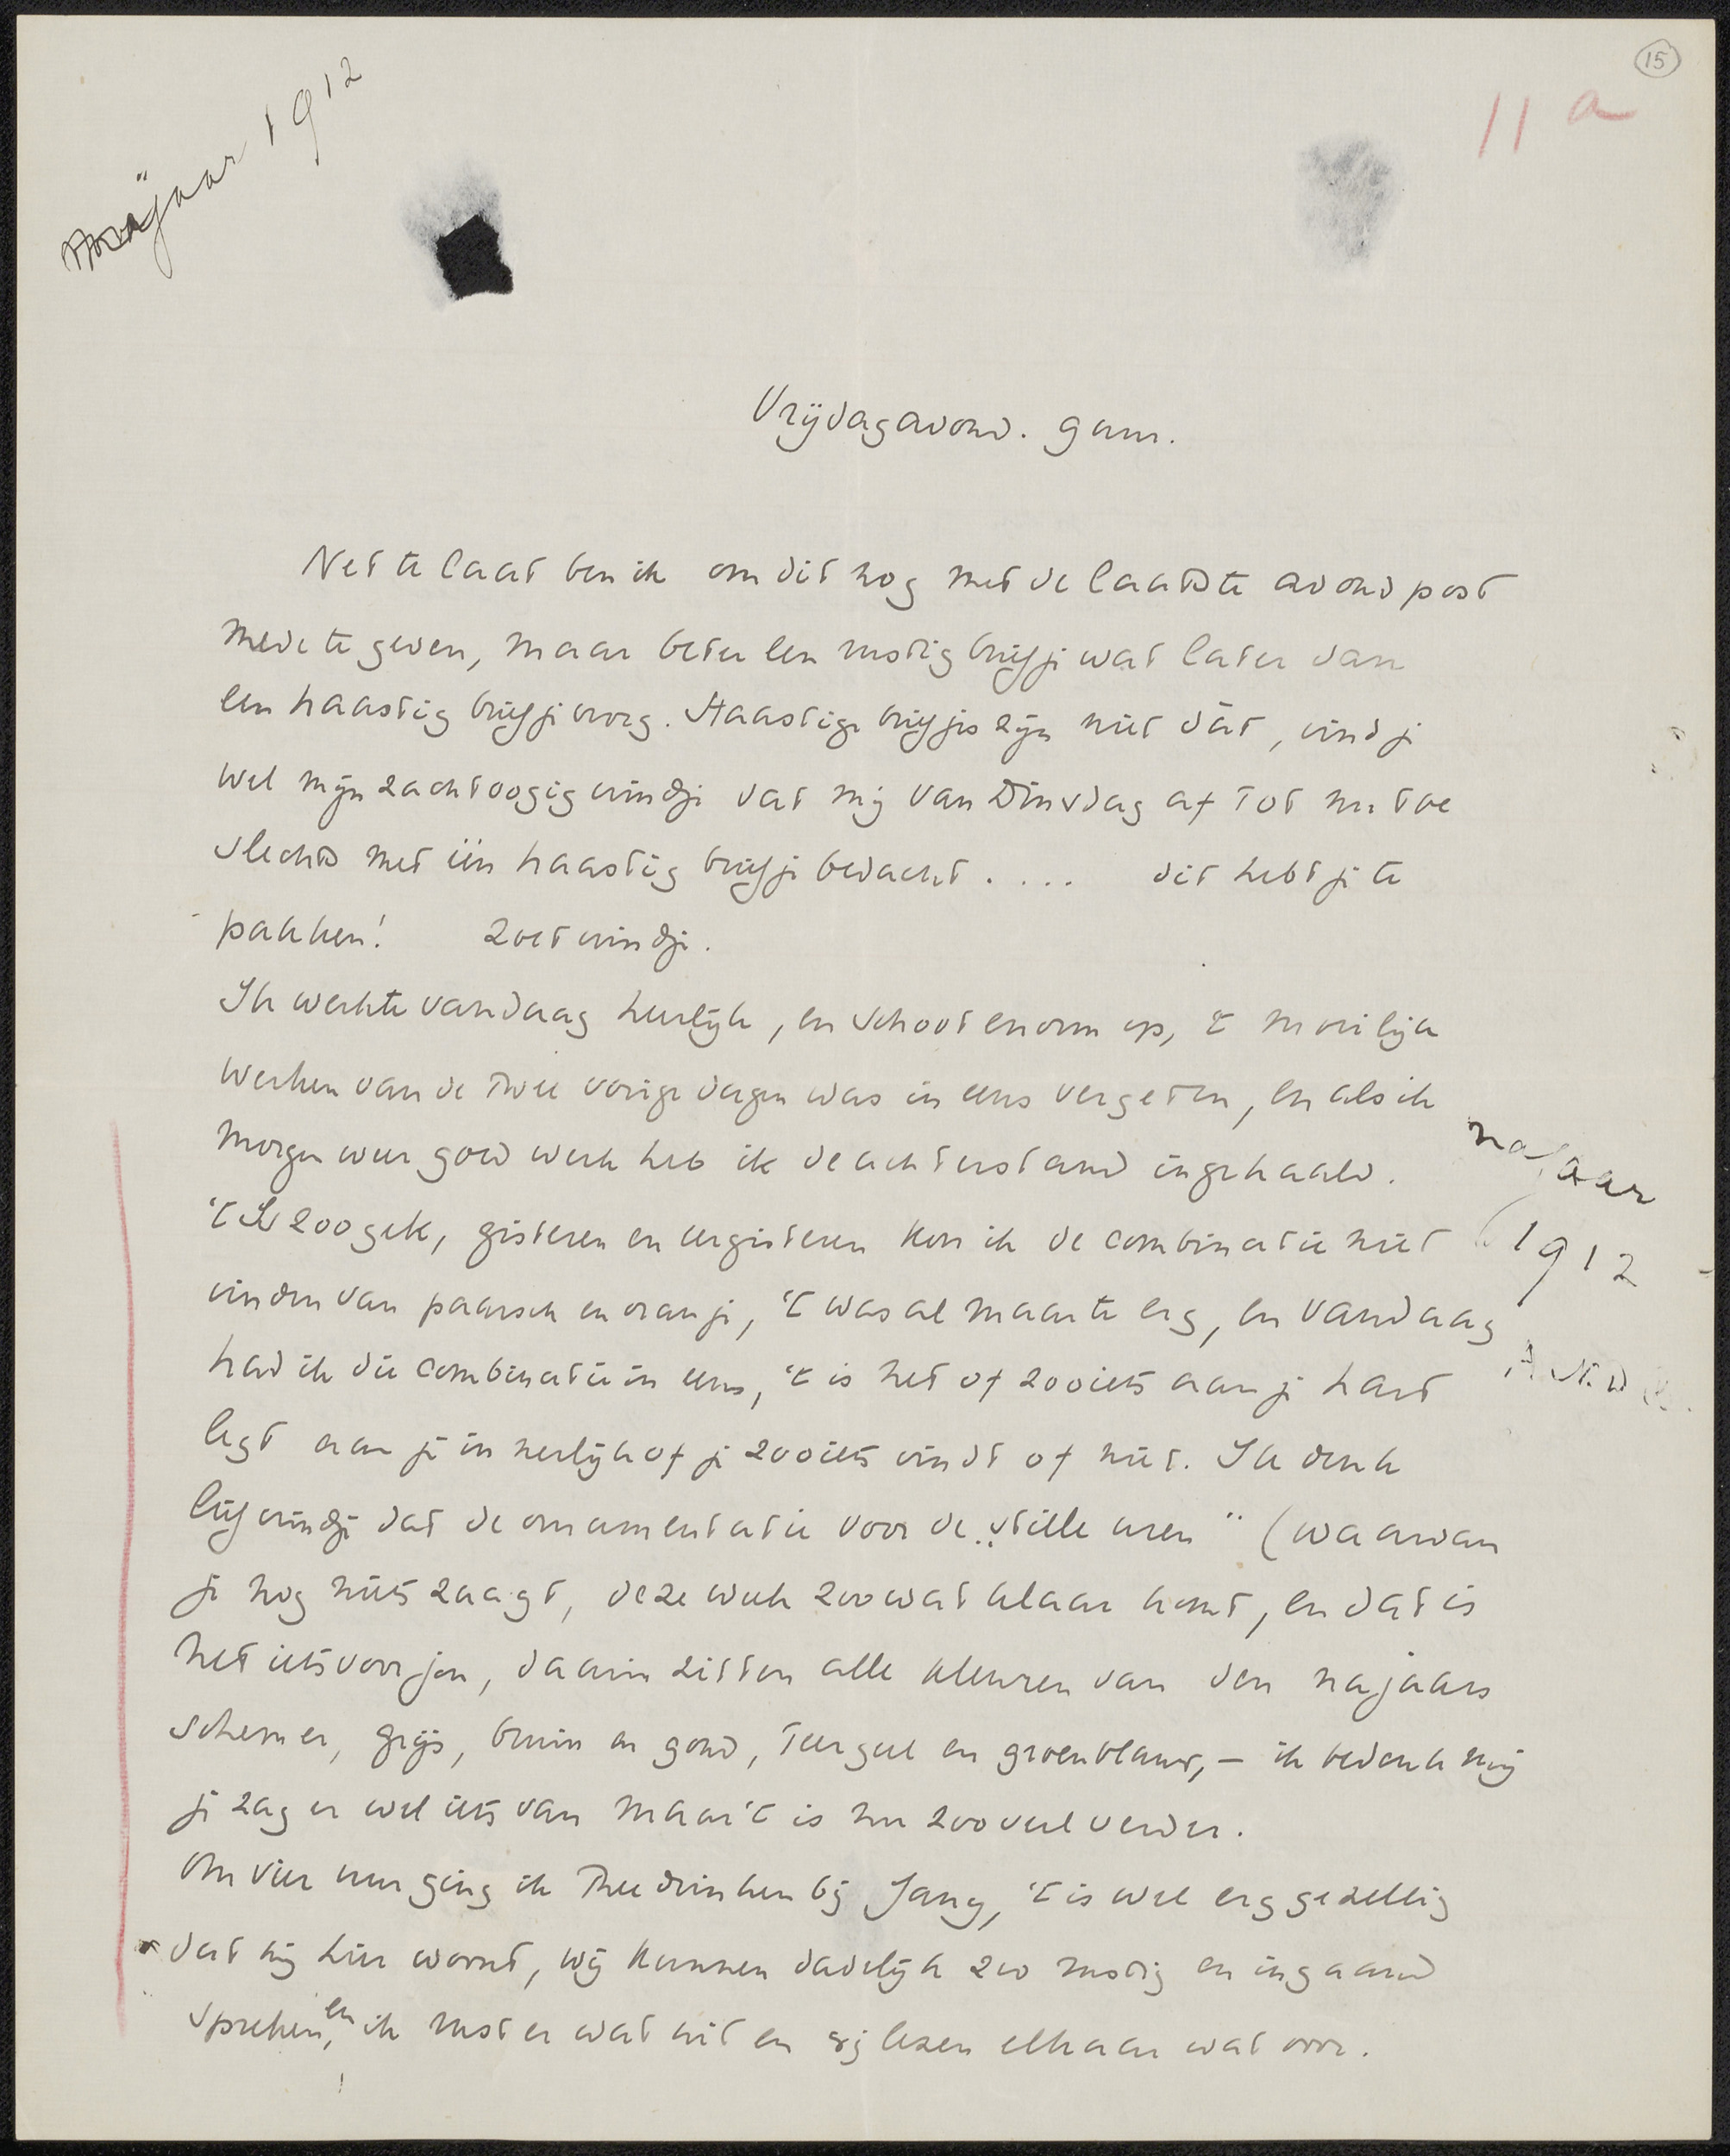 15
11 a
najaar 1912
Vrijdagavond. 9 uur.
Net te laat ben ik om dit nog met de laatste avondpost
mede te geven, maar beter een rustig briefje wat later dan
een haastig briefje vroeg. Haastige briefjes zijn niet dát, vind je
wel mijn zachtoogig vrindje dat mij van Dinsdag af tot nu toe
slechts met één haastig briefje bedacht . . . . dit hebt je te
pakken! Zoet vrindje.
Ik werkte vandaag heerlijk, en schoot enorm op, 't moeilijk
werken van de twee vorige dagen was in eens vergeten, en als ik
morgen weer goed werk heb ik de achterstand ingehaald.
't Is zoo gek, gisteren en eergisteren kon ik de combinatie niet
vinden van paarsch en oranje, 't was al maar te erg, en vandaag
had ik die combinatie in eens, 't is net of zooiets aan je hart
ligt aan je innerlijk of je zooiets vindt of niet. Ik denk
lief vrindje dat de ornamentatie voor de „stille uren" (waarvan
je nog niets zaagt, deze week zoowat klaar komt, en dat is
net iets voor jou, daarin zitten alle kleuren van den najaars
schemer, grijs, bruin en goud, teergeel en groenblauw, – ik bedenk mij
je zag er wel iets van maar 't is nu zooveel verder.
Om vier uur ging ik thee drinken bij Jany, 't is wel erg gezellig
dat hij hier woont, wij kunnen dadelijk zoo rustig en ingaand
spreken, en ik rust er wat uit en wij lezen elkaar wat voor.
najaar
1912